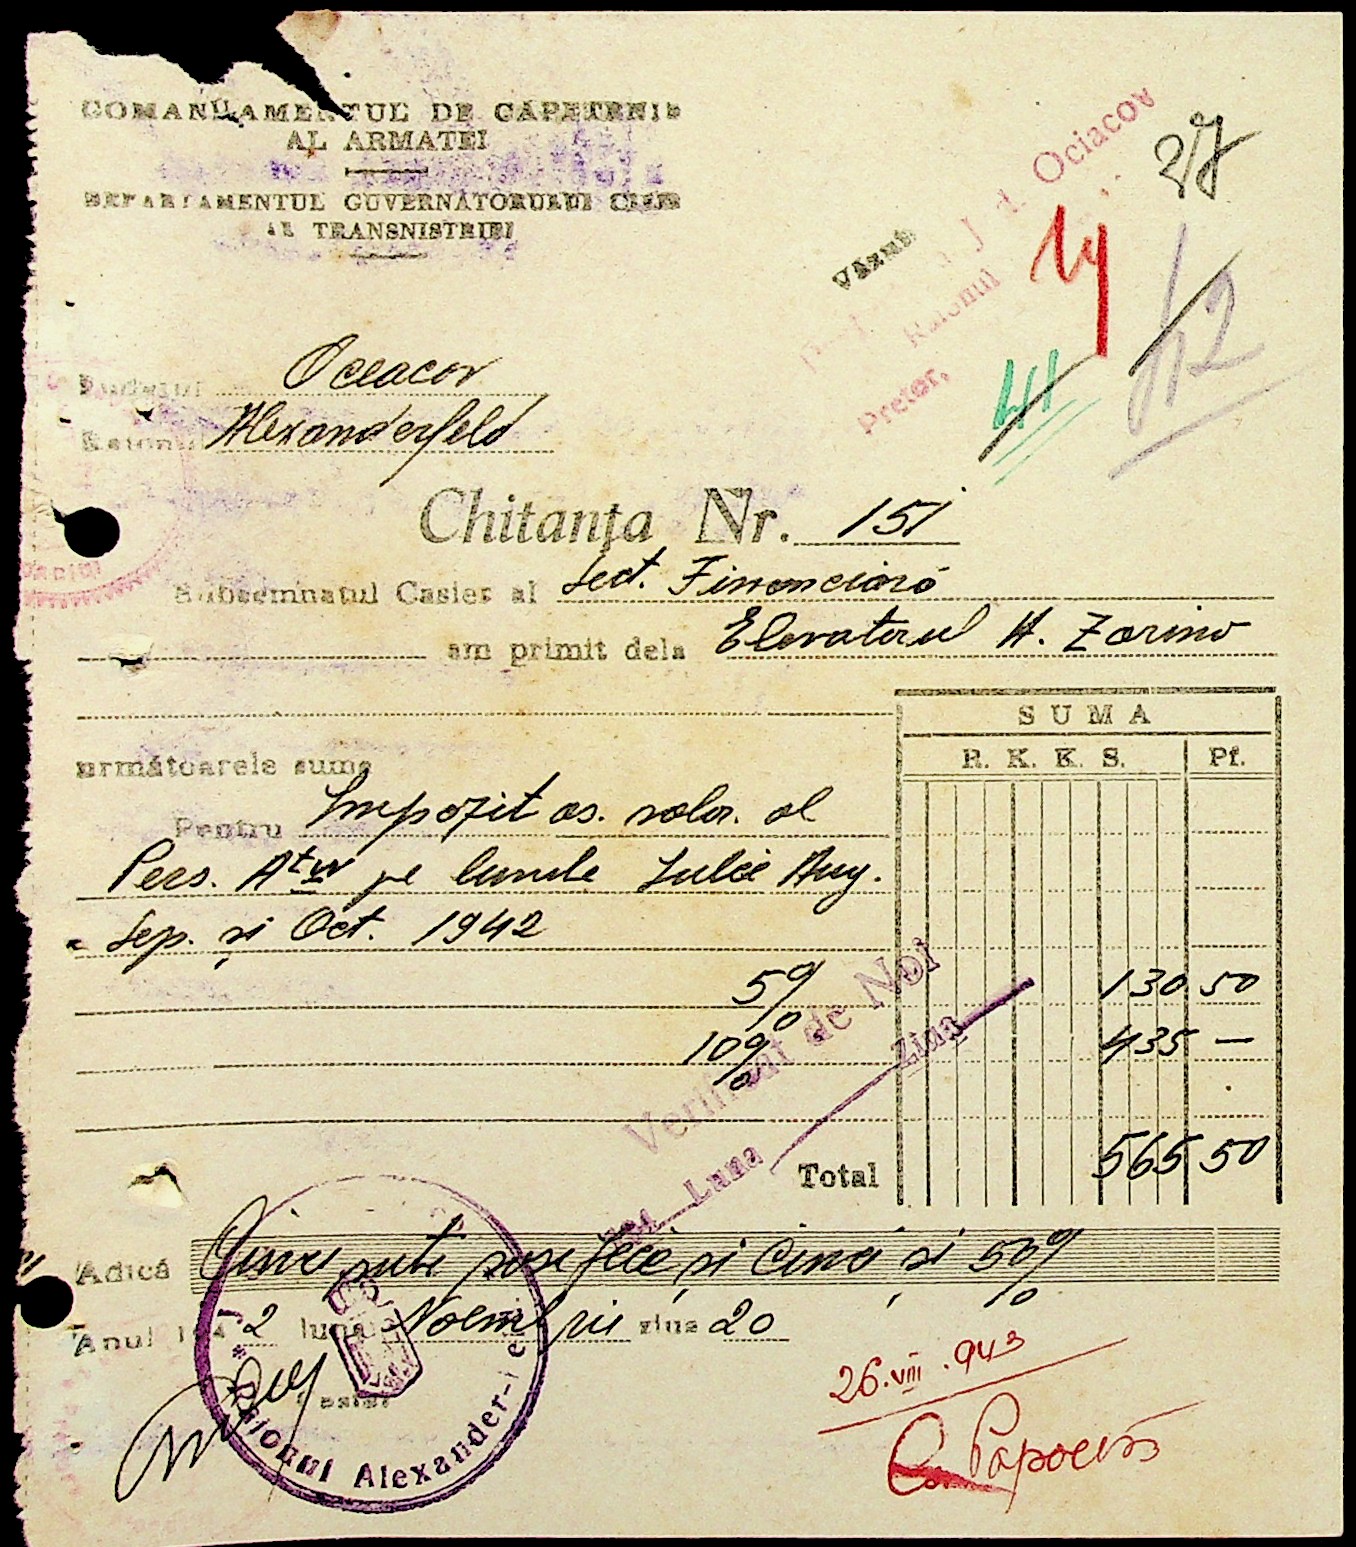 COMANDAMENTUL DE CAPETENIE
AL ARMATEI
DEPARTAMENTUL GUVERNATORULUI CIVIL
AL TRANSNISTRIEI
Văzut
Ociacov
Raionul
Pretor,
27
14
41
12
Județul Oceacov
Raionul Alexanderfeld
Chitanța Nr. 151
Subsemnatul Casier al Sect. Financiară
am primit dela Elevatorul H. Zarino
următoarele sume
SUMA
R. K. K. S. Pf.
Pentru Impozit as. salar. al
Pers. Atw pe lunile Iulie Aug.
Sep. și Oct. 1942
5% 130 50
10% 435 —
Verificat de Noi
Luna Ziua
Total 565 50
Adică Cinci sute șase zeci și cinci și 50%
Anul 194 2 luna Noembrie ziua 20
Casier
Raionul Alexander
26.VIII.943